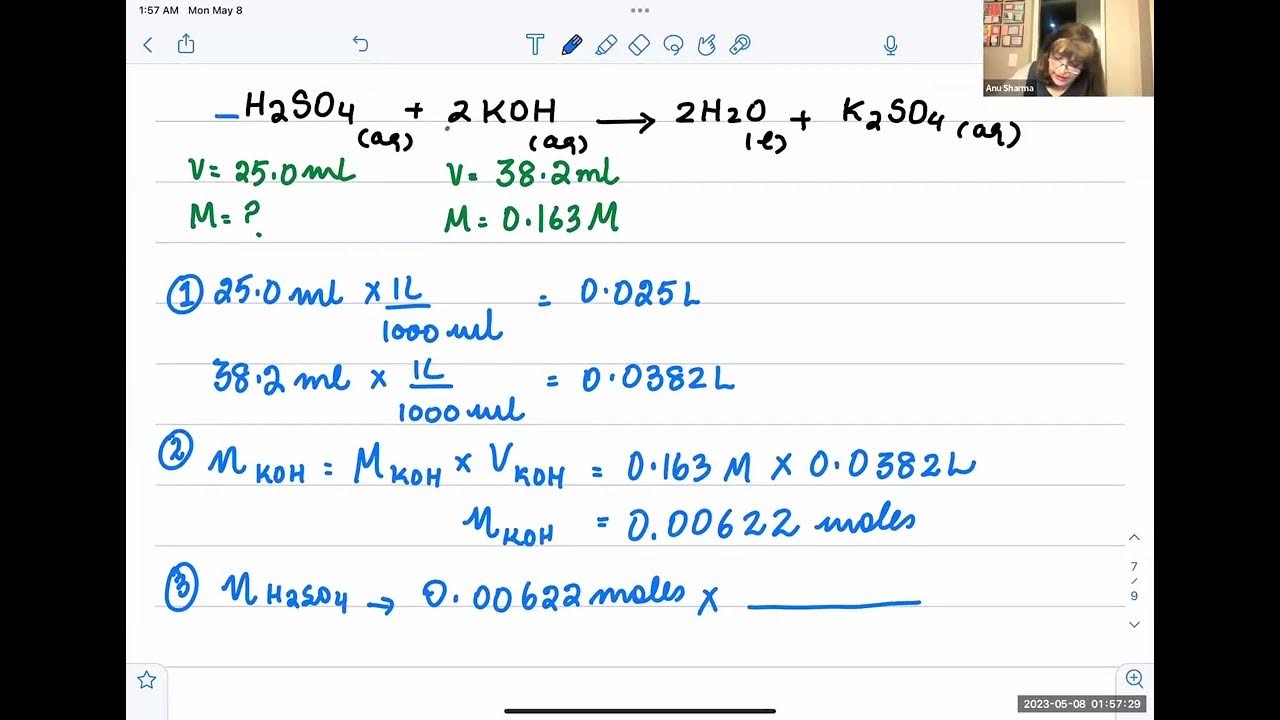 1:57 AM Mon May 8
Anu Sharma
H2SO4 (aq) + 2 KOH (aq) → 2H2O (l) + K2SO4 (aq)
V= 25.0 ml V= 38.2 ml
M= ? M= 0.163 M
① 25.0 ml × 1L/1000 ml = 0.025 L
38.2 ml × 1L/1000 ml = 0.0382 L
② nKOH = MKOH × VKOH = 0.163 M × 0.0382 L
nKOH = 0.00622 moles
③ nH2SO4 → 0.00622 moles ×
7/9
2023-05-08 01:57:29